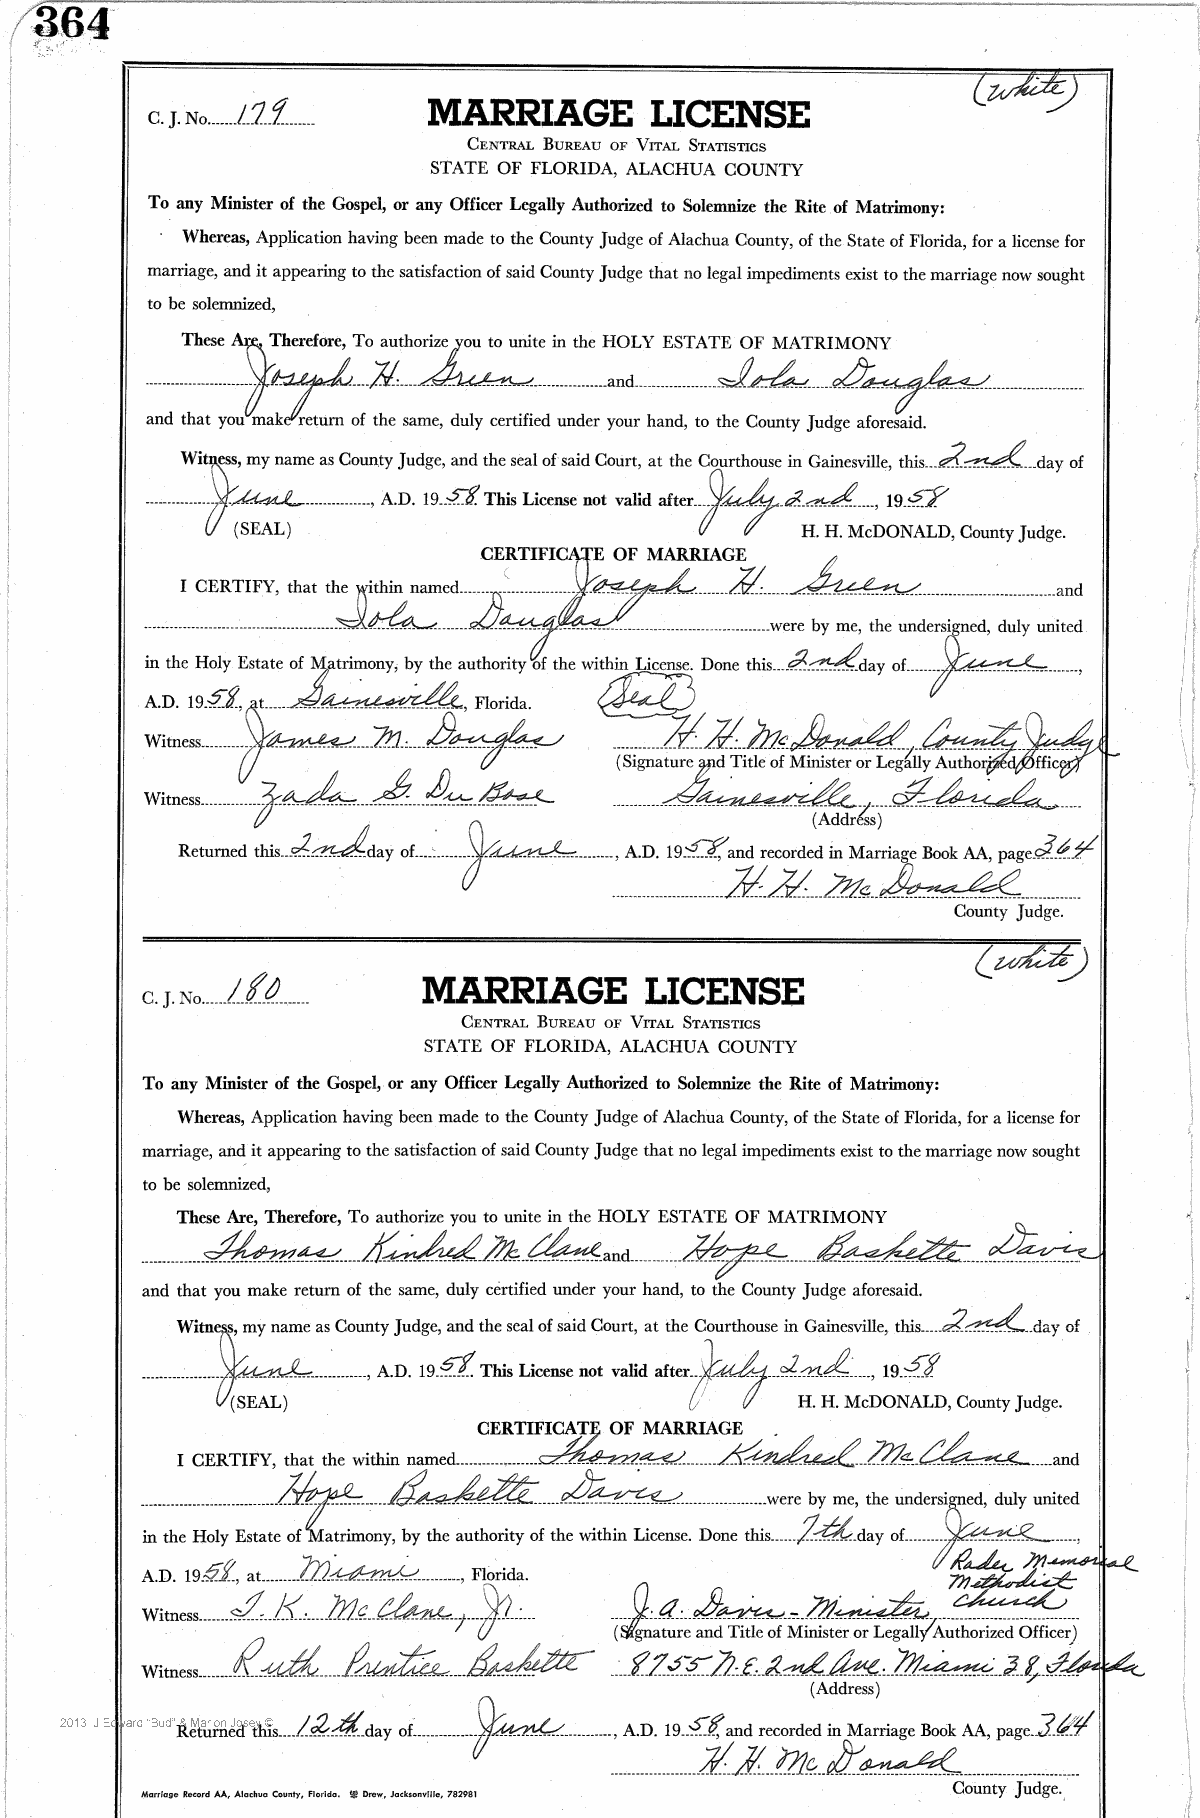 364
(white)
C. J. No. 179
MARRIAGE LICENSE
CENTRAL BUREAU OF VITAL STATISTICS
STATE OF FLORIDA, ALACHUA COUNTY
To any Minister of the Gospel, or any Officer Legally Authorized to Solemnize the Rite of Matrimony:
Whereas, Application having been made to the County Judge of Alachua County, of the State of Florida, for a license for
marriage, and it appearing to the satisfaction of said County Judge that no legal impediments exist to the marriage now sought
to be solemnized,
These Are, Therefore, To authorize you to unite in the HOLY ESTATE OF MATRIMONY
Joseph H. Green and Iola Douglas
and that you make return of the same, duly certified under your hand, to the County Judge aforesaid.
Witness, my name as County Judge, and the seal of said Court, at the Courthouse in Gainesville, this 2nd day of
June, A.D. 1958. This License not valid after July 2nd, 1958
(SEAL) H. H. McDONALD, County Judge.
CERTIFICATE OF MARRIAGE
I CERTIFY, that the within named Joseph H. Green and
Iola Douglas were by me, the undersigned, duly united
in the Holy Estate of Matrimony, by the authority of the within License. Done this 2nd day of June,
A.D. 1958, at Gainesville, Florida. (Seal)
Witness James M. Douglas H. H. McDonald, County Judge
(Signature and Title of Minister or Legally Authorized Officer)
Witness Zada G. Du Bose Gainesville, Florida
(Address)
Returned this 2nd day of June, A.D. 1958, and recorded in Marriage Book AA, page 364
H. H. McDonald
County Judge.
(white)
C. J. No. 180
MARRIAGE LICENSE
CENTRAL BUREAU OF VITAL STATISTICS
STATE OF FLORIDA, ALACHUA COUNTY
To any Minister of the Gospel, or any Officer Legally Authorized to Solemnize the Rite of Matrimony:
Whereas, Application having been made to the County Judge of Alachua County, of the State of Florida, for a license for
marriage, and it appearing to the satisfaction of said County Judge that no legal impediments exist to the marriage now sought
to be solemnized,
These Are, Therefore, To authorize you to unite in the HOLY ESTATE OF MATRIMONY
Thomas Kindred McClane and Hope Baskette Davis
and that you make return of the same, duly certified under your hand, to the County Judge aforesaid.
Witness, my name as County Judge, and the seal of said Court, at the Courthouse in Gainesville, this 2nd day of
June, A.D. 1958. This License not valid after July 2nd, 1958
(SEAL) H. H. McDONALD, County Judge.
CERTIFICATE OF MARRIAGE
I CERTIFY, that the within named Thomas Kindred McClane and
Hope Baskette Davis were by me, the undersigned, duly united
in the Holy Estate of Matrimony, by the authority of the within License. Done this 7th day of June,
Rader Memorial
A.D. 1958, at Miami, Florida. Methodist
Witness T. K. McClane, Jr. J. A. Davis - Minister, Church
(Signature and Title of Minister or Legally Authorized Officer)
Witness Ruth Prentice Baskette 8755 N.E. 2nd Ave. Miami 38, Florida
(Address)
2013 J Edward "Bud" & Marion Josey ©
Returned this 12th day of June, A.D. 1958, and recorded in Marriage Book AA, page 364
H. H. McDonald
County Judge.
Marriage Record AA, Alachua County, Florida. Drew, Jacksonville, 782981